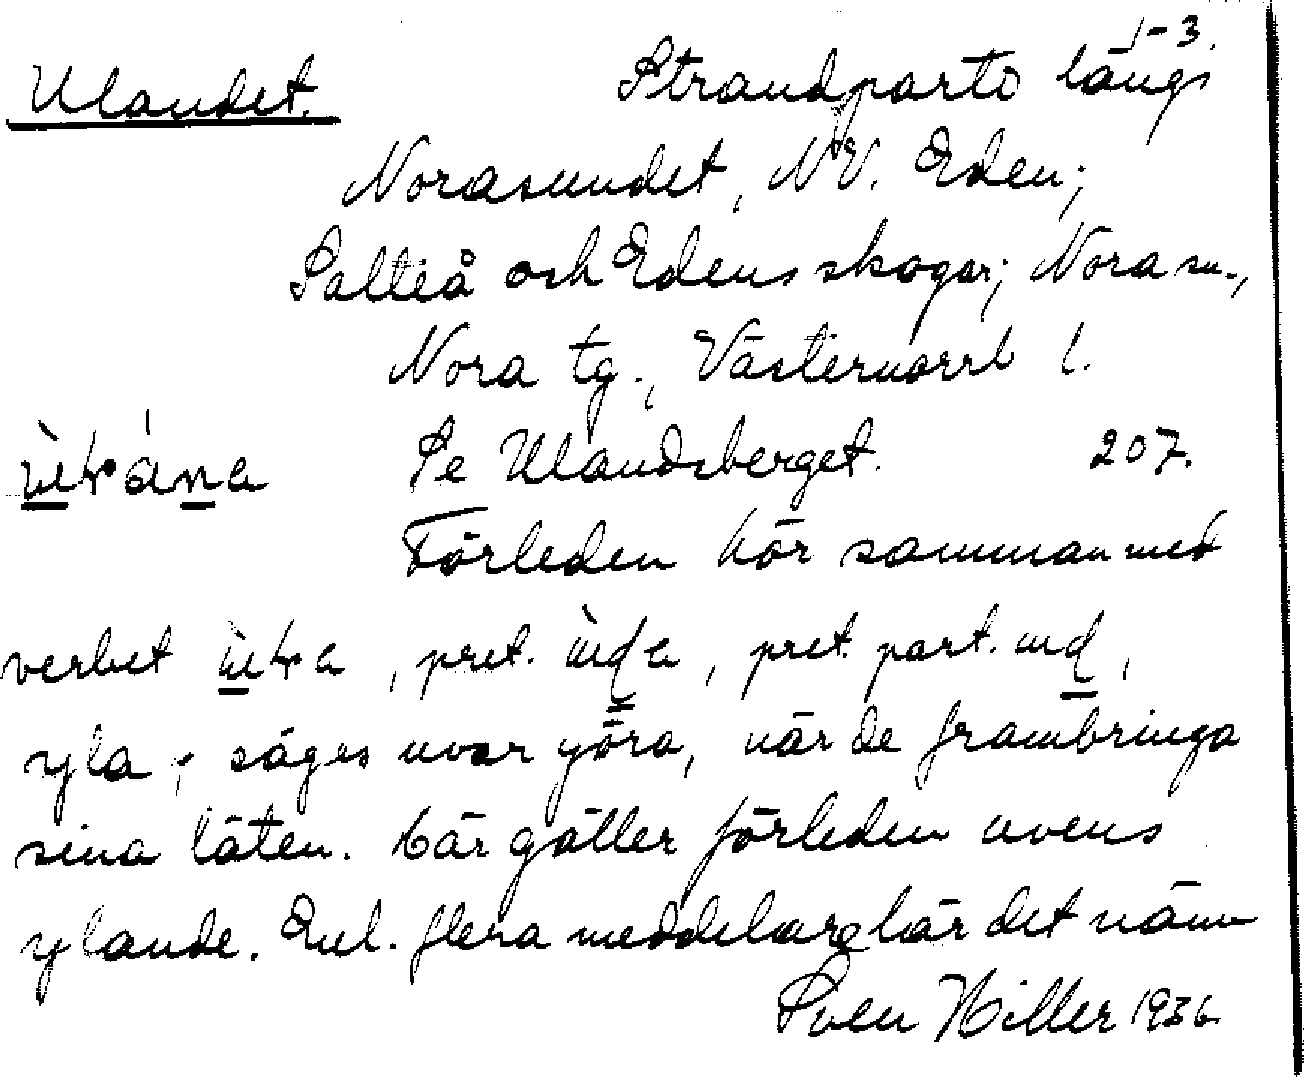 1-3.
Ulandet. Strandparti längs
Norasundet, NV. Eden;
Salteå och Edens skogar; Nora sn.,
Nora tg., Västernorrl l.
Se Ulandsberget. 207.
Förleden hör samman med
verbet , pret. , pret. part. ,
yla; säges uvar göra, när de frambringa
sina läten. Här gäller förleden uvens
ylande. Enl. flera meddelare här det näm-
Sven Hiller 1936